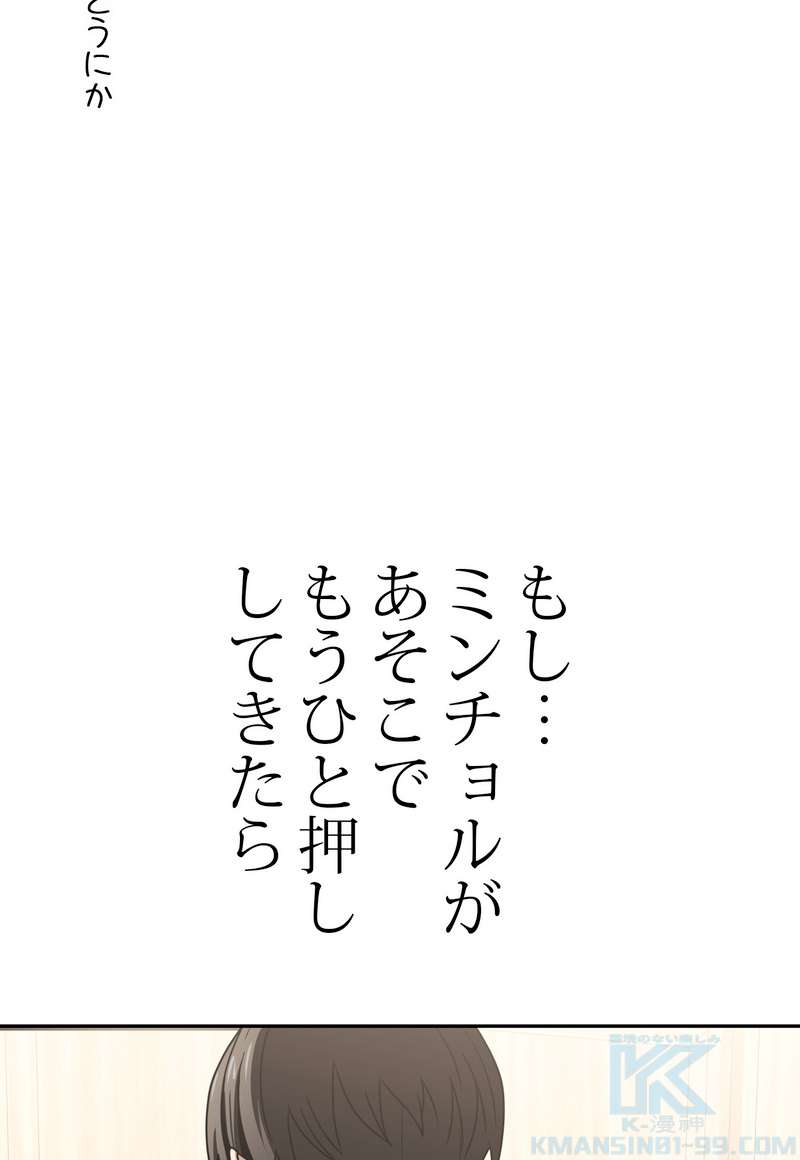 うにか
もし…
ミンチョルが
あそこで
もうひと押し
してきたら
環境のない楽しみ
K-漫神
KMANSIN01-99.COM